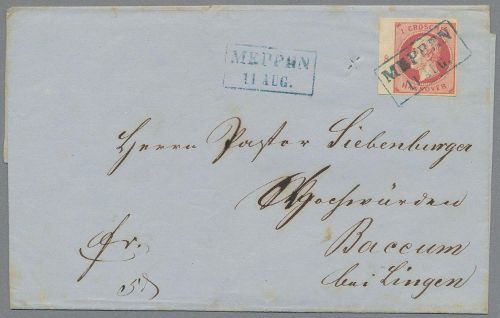 MEPPEN
11 AUG.
1 GROSCHEN
MEPPEN
11 AUG.
HANNOVER
Herrn Pastor Siebenburger
Hochwürden
Baccum
bei Lingen
fr.